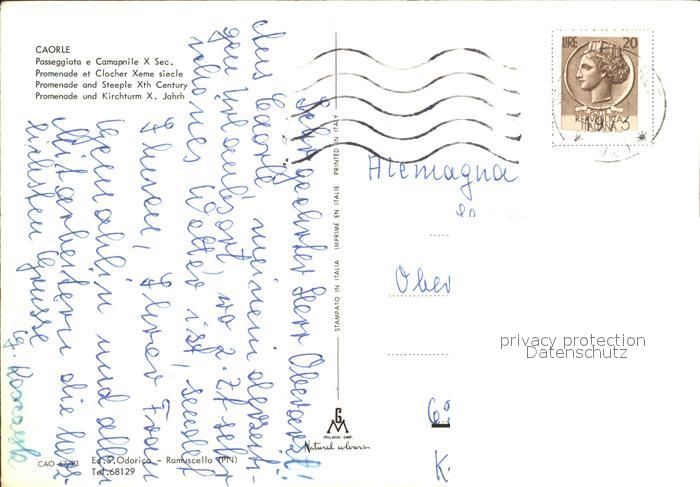 CAORLE
Passeggiata e Camapnile X Sec.
Promenade et Clocher Xeme siecle
Promenade and Steeple Xth Century
Promenade und Kirchturm X. Jahrh
Sehr geehrter Herr Oberarzt!
Aus Caorle, meinem derzeiti-
gen Urlaubsort, wo z. Zt. sehr
schönes Wetter ist, sendet
Ihnen, Ihrer Frau
Gemahlin und allen
Mitarbeitern die herz-
lichsten Grüsse
STAMPATO IN ITALIA IMPRIME EN ITALIE PRINTED IN ITALY
LIRE 20
ITALIANA
Alemagna
Ober
K
privacy protection
Datenschutz
GM
MILANO DEP.
Natural colours
Ed. S. Odorico - Ramuscello (PN)
Tel. 68129